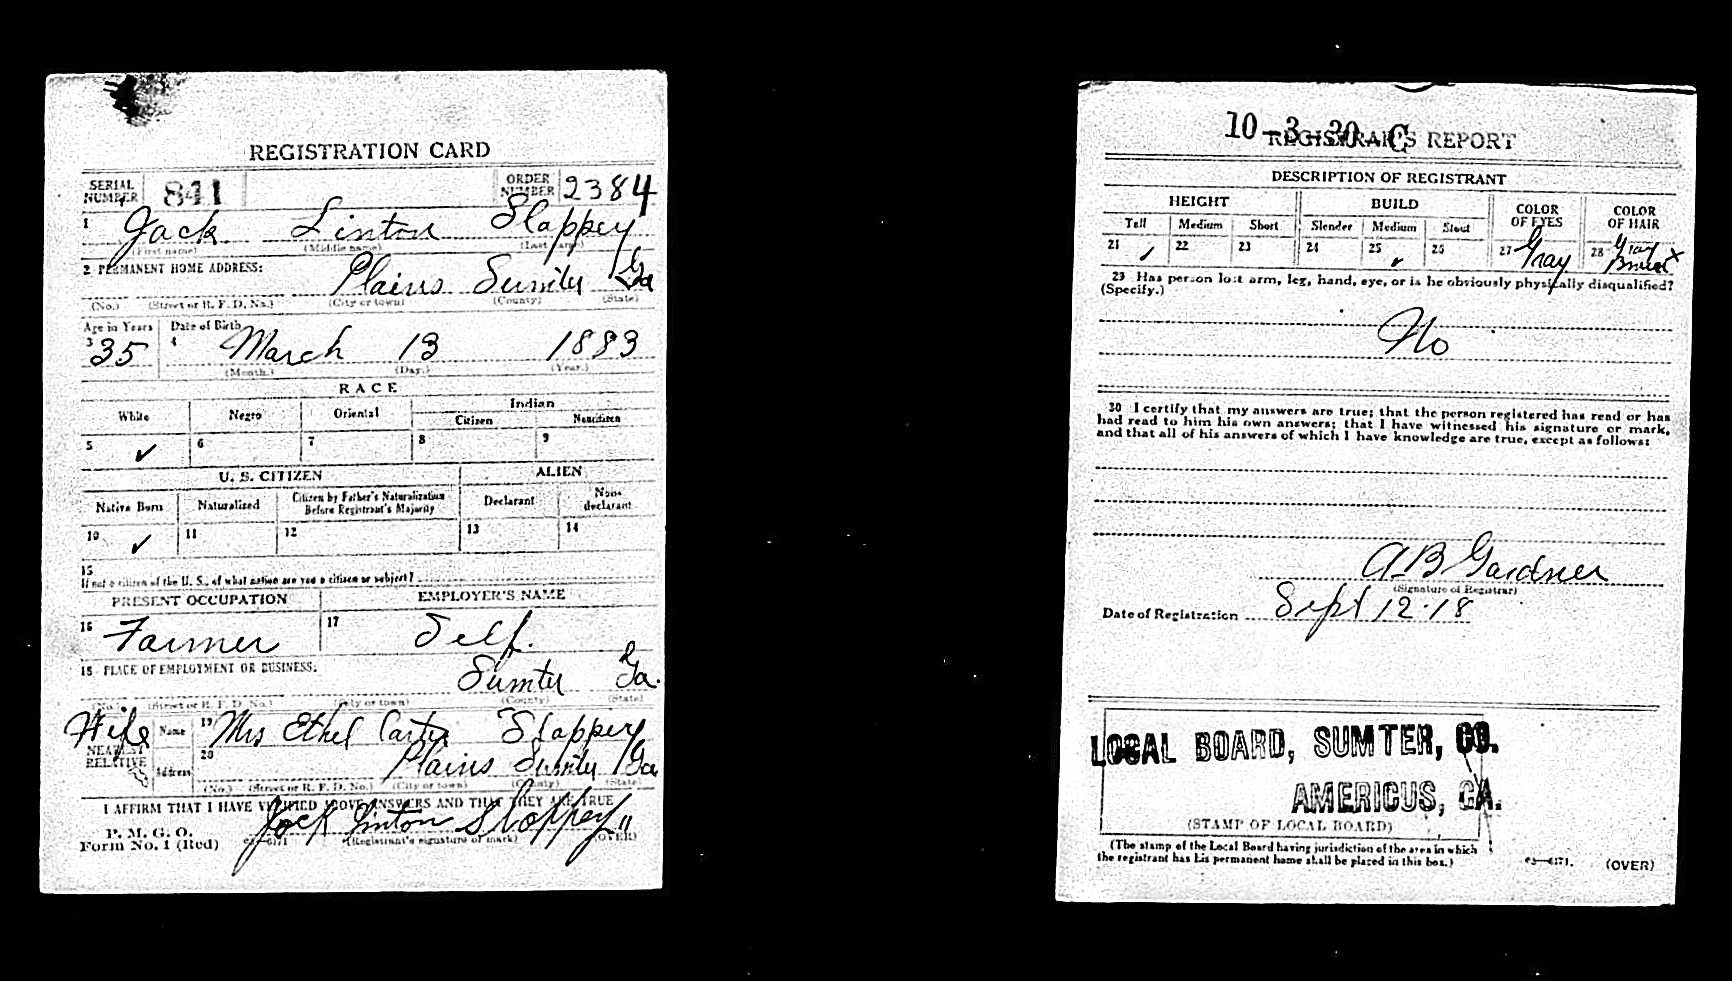 REGISTRATION CARD
SERIAL NUMBER 841 ORDER NUMBER 2384
1 Jack Linton Slappey
(First name) (Middle name) (Last name)
2 PERMANENT HOME ADDRESS:
Plains Sumter Ga
(No.) (Street or R. F. D. No.) (City or town) (County) (State)
Age in Years Date of Birth
3 35 4 March 13 1883
(Month.) (Day.) (Year.)
RACE
White Negro Oriental Indian
Citizen Noncitizen
5 ✓ 6 7 8 9
U. S. CITIZEN ALIEN
Native Born Naturalized Citizen by Father's Naturalization Before Registrant's Majority Declarant Non-declarant
10 ✓ 11 12 13 14
15
If not a citizen of the U. S., of what nation are you a citizen or subject?
PRESENT OCCUPATION EMPLOYER'S NAME
16 Farmer 17 Self.
18 PLACE OF EMPLOYMENT OR BUSINESS:
Sumter Ga.
(No.) (Street or R. F. D. No.) (City or town) (County) (State)
Wife Name 19 Mrs Ethel Carter Slappey
NEAREST RELATIVE
Address 20 Plains Sumter Ga
(No.) (Street or R. F. D. No.) (City or town) (County) (State)
I AFFIRM THAT I HAVE VERIFIED ABOVE ANSWERS AND THAT THEY ARE TRUE
P. M. G. O.
Form No. 1 (Red) Jack Linton Slappey
(Registrant's signature or mark) (OVER)
10-3-30 C
REGISTRAR'S REPORT
DESCRIPTION OF REGISTRANT
HEIGHT BUILD COLOR OF EYES COLOR OF HAIR
Tall Medium Short Slender Medium Stout
21 ✓ 22 23 24 25 ✓ 26 27 Gray 28 Gray x
29 Has person lost arm, leg, hand, eye, or is he obviously physically disqualified?
(Specify.)
No
30 I certify that my answers are true; that the person registered has read or has
had read to him his own answers; that I have witnessed his signature or mark,
and that all of his answers of which I have knowledge are true, except as follows:
A B Gardner
(Signature of Registrar)
Date of Registration Sept 12-18
LOCAL BOARD, SUMTER, CO.
AMERICUS, GA.
(STAMP OF LOCAL BOARD)
(The stamp of the Local Board having jurisdiction of the area in which
the registrant has his permanent home shall be placed in this box.)
03-6171. (OVER)